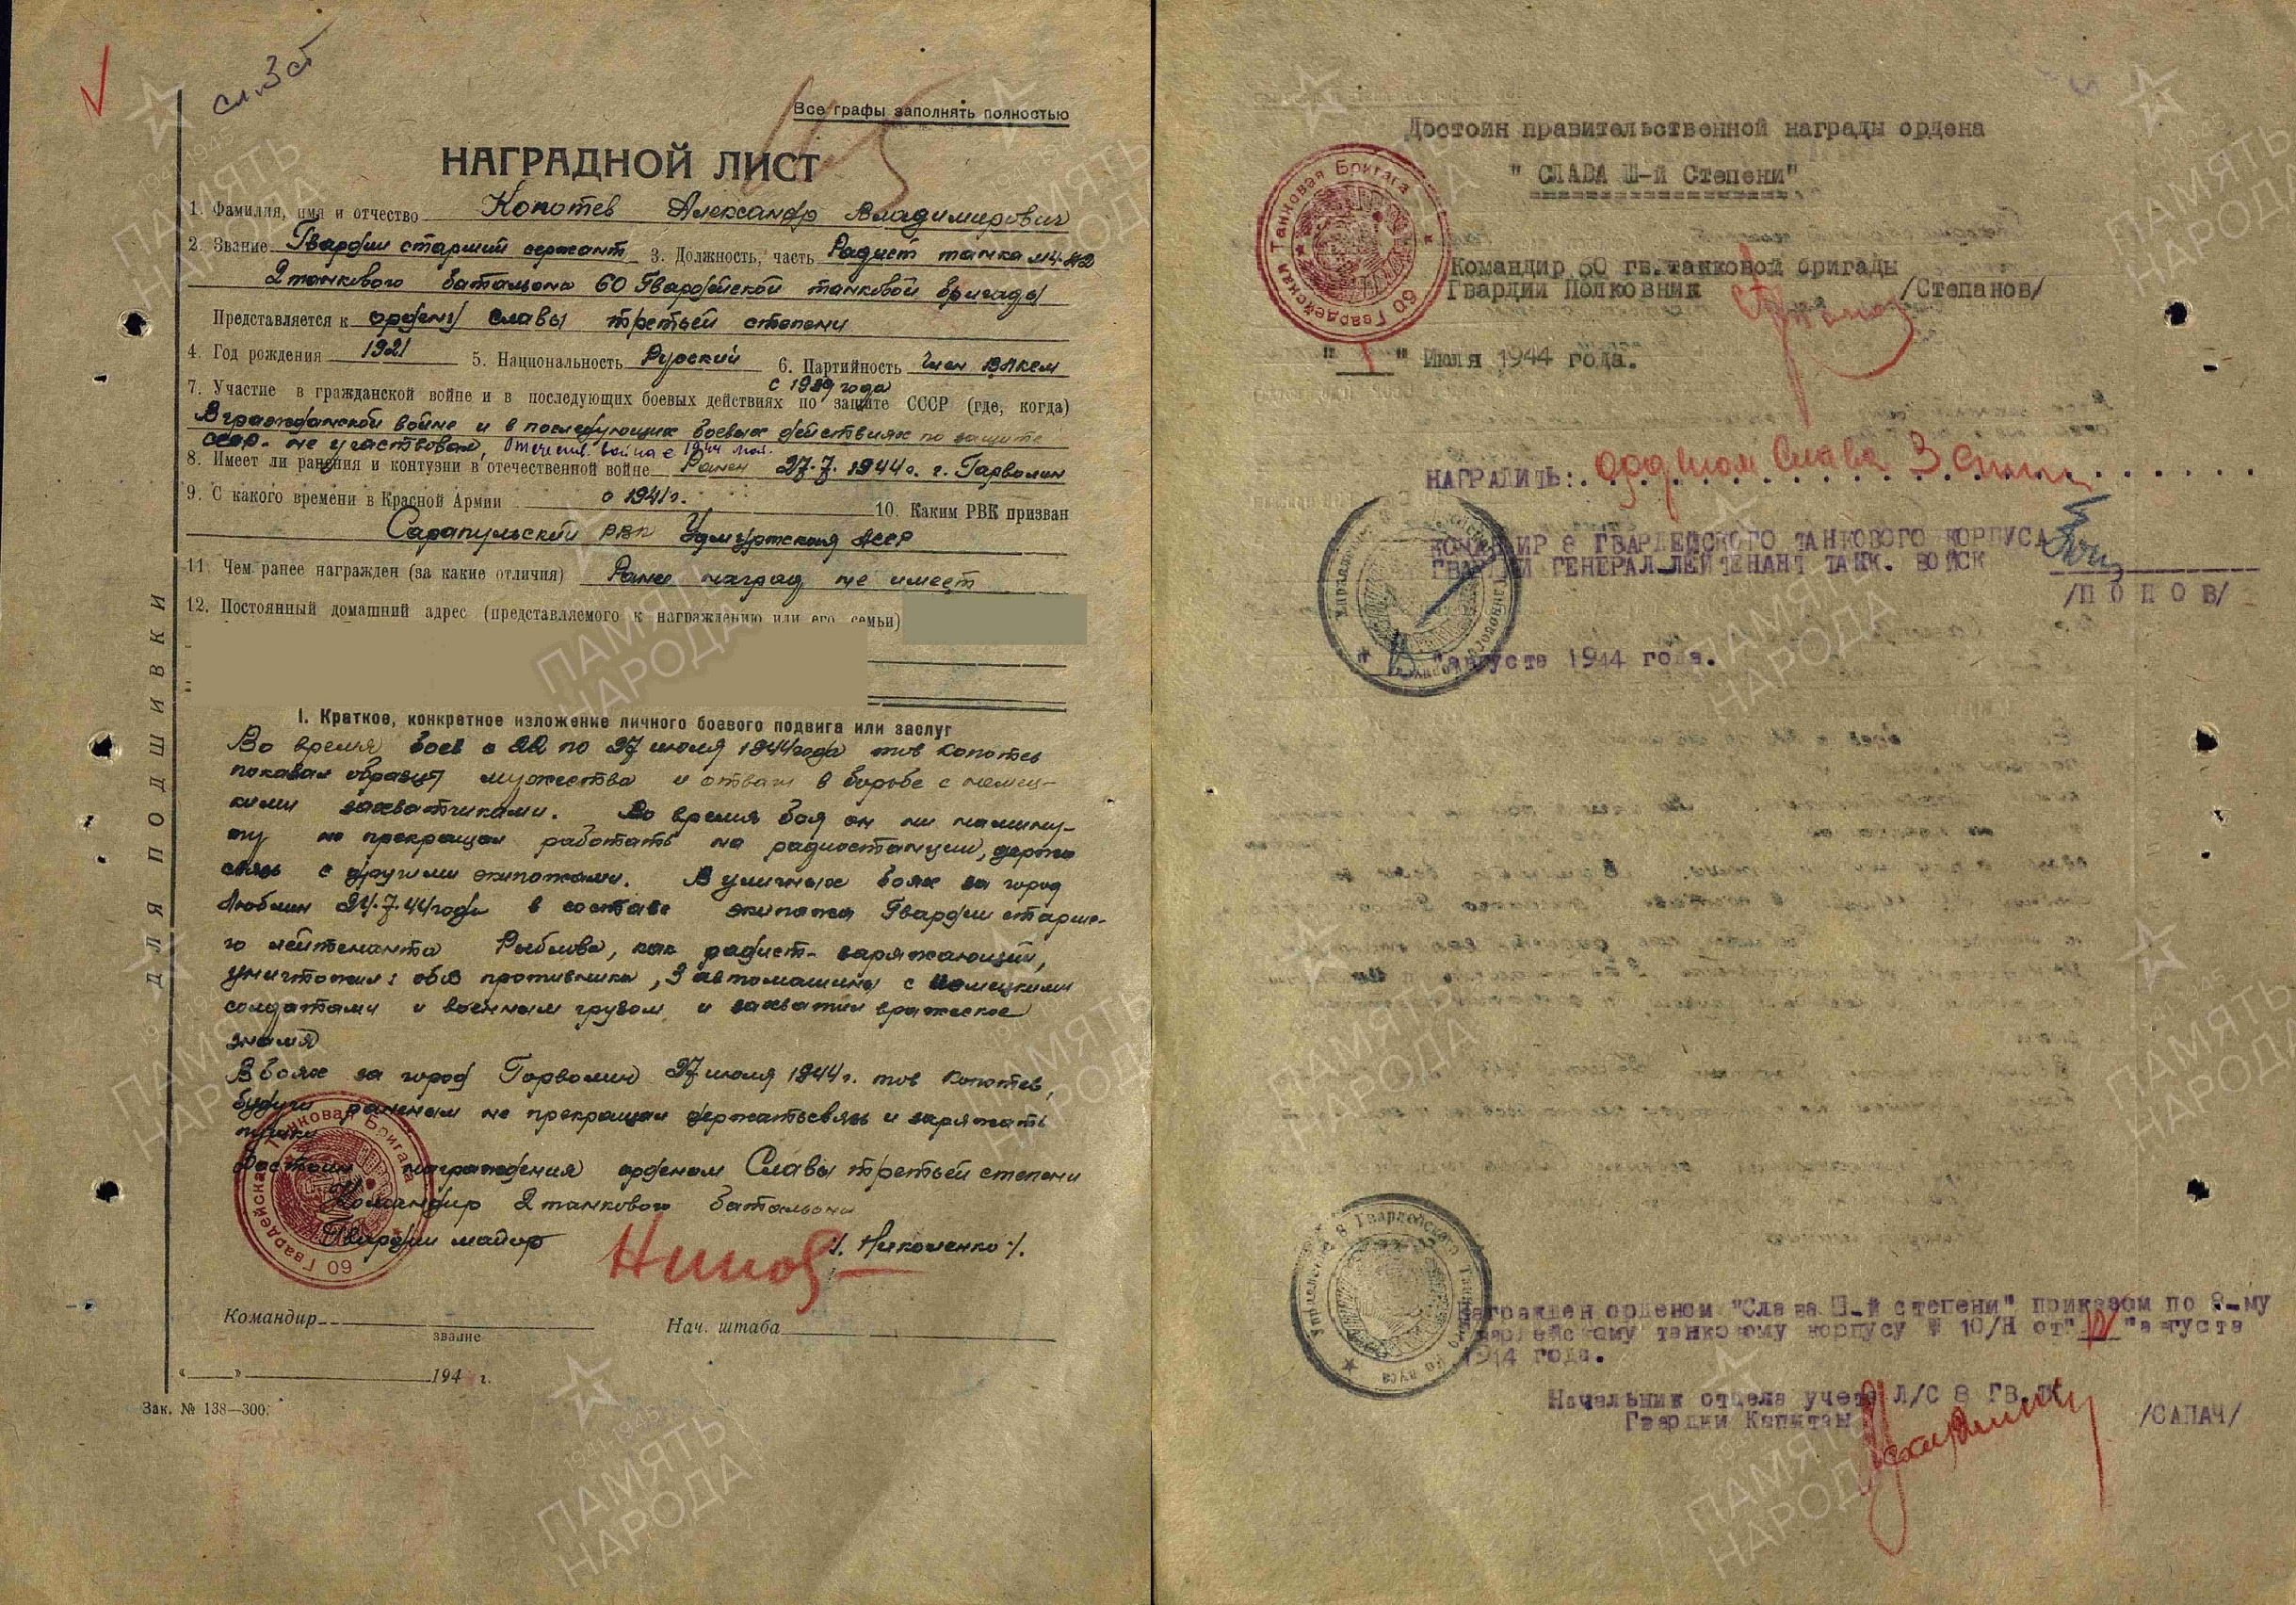 сл. 3 ст
Все графы заполнять полностью
НАГРАДНОЙ ЛИСТ
1. Фамилия, имя и отчество Копотев Александр Владимирович
2. Звание Гвардии старший сержант 3. Должность, часть Радист танка М4-А2
2 танкового батальона 60 Гвардейской танковой бригады
Представляется к ордену Славы третьей степени
4. Год рождения 1921 5. Национальность Русский 6. Партийность член ВЛКСМ
с 1939 года
7. Участие в гражданской войне и в последующих боевых действиях по защите СССР (где, когда)
В гражданской войне и в последующих боевых действиях по защите
СССР не участвовал, Отечеств. война с 1944 июл.
8. Имеет ли ранения и контузии в отечественной войне Ранен 27.7.1944 г. г. Гарволин
9. С какого времени в Красной Армии с 1941 г.
10. Каким РВК призван
Сарапульский РВК Удмуртская АССР
11. Чем ранее награжден (за какие отличия) Ранее наград не имеет
12. Постоянный домашний адрес (представляемого к награждению или его семьи)
ДЛЯ ПОДШИВКИ
I. Краткое, конкретное изложение личного боевого подвига или заслуг
Во время боев с 22 по 27 июля 1944 года тов Копотев
показал образцы мужества и отваги в борьбе с немец-
кими захватчиками. Во время боя он ни на мину-
ту не прекращал работать на радиостанции, держа
связь с другими экипажами. В уличных боях за город
Люблин 24.7.44 года в составе экипажа Гвардии старше-
го лейтенанта как радист-заряжающий,
уничтожил: обоз противника, 3 автомашины с немецкими
солдатами и военным грузом и захватил вражеское
знамя
В боях за город Горволин 27 июля 1944 г. тов Копотев,
будучи раненым не прекращал держать связь и заряжать
пушку
Достоин награждения орденом Славы третьей степени
Командир 2 танкового батальона
Гвардии майор /. Никоменко /.
60 Гвардейская Танковая Бригада
Командир
звание
Нач. штаба
« » 194 г.
Зак. № 138—300.
Достоин правительственной награды ордена
"СЛАВА Ш-й Степени"
60 Гвардейская Танковая Бригада
Командир 60 гв. танковой бригады
Гвардии Полковник /Степанов/
" 1 " Июля 1944 года.
НАГРАДИТЬ: орденом Слава 3 степени
КОМАНДИР 8 ГВАРДЕЙСКОГО ТАНКОВОГО КОРПУСА
ГВАРДИИ ГЕНЕРАЛ-ЛЕЙТЕНАНТ ТАНК. ВОЙСК
/ПОПОВ/
" " августа 1944 года.
Управление 8 Гвардейского Танкового Корпуса
Награжден орденом "Слава Ш-й степени" приказом по 8-му
гвардейскому танковому корпусу № 10/Н от " " августа
1944 года.
Начальник отдела учета Л/С 8 ГВ. ТК
Гвардии Капитан /САПАЧ/
ПАМЯТЬ НАРОДА
1941 1945